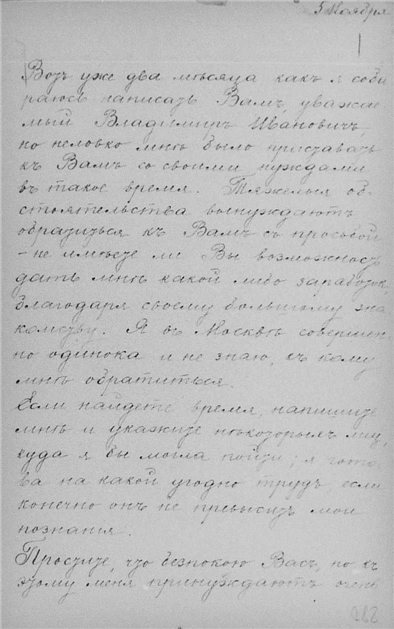 5 Ноября
Вотъ уже два мѣсяца какъ я соби
раюсь написать Вамъ, уважае
мый Владиміръ Ивановичъ,
но неловко мнѣ было приставать
къ Вамъ со своими нуждами
въ такое время. Тяжелыя об
стоятельства вынуждаютъ
обратиться къ Вамъ съ просьбой
– не имѣете ли Вы возможность
дать мнѣ какой либо заработок,
благодаря своему большому зна
комству. Я въ Москвѣ совершен
но одинока и не знаю, къ кому
мнѣ обратиться.
Если найдете время, напишите
мнѣ и укажите
куда я бы могла пойти; я гото
ва на какой угодно трудъ, если
конечно онъ не превыситъ мои
познанія.
Простите, что безпокою Васъ, но къ
этому меня принуждаютъ очень
212